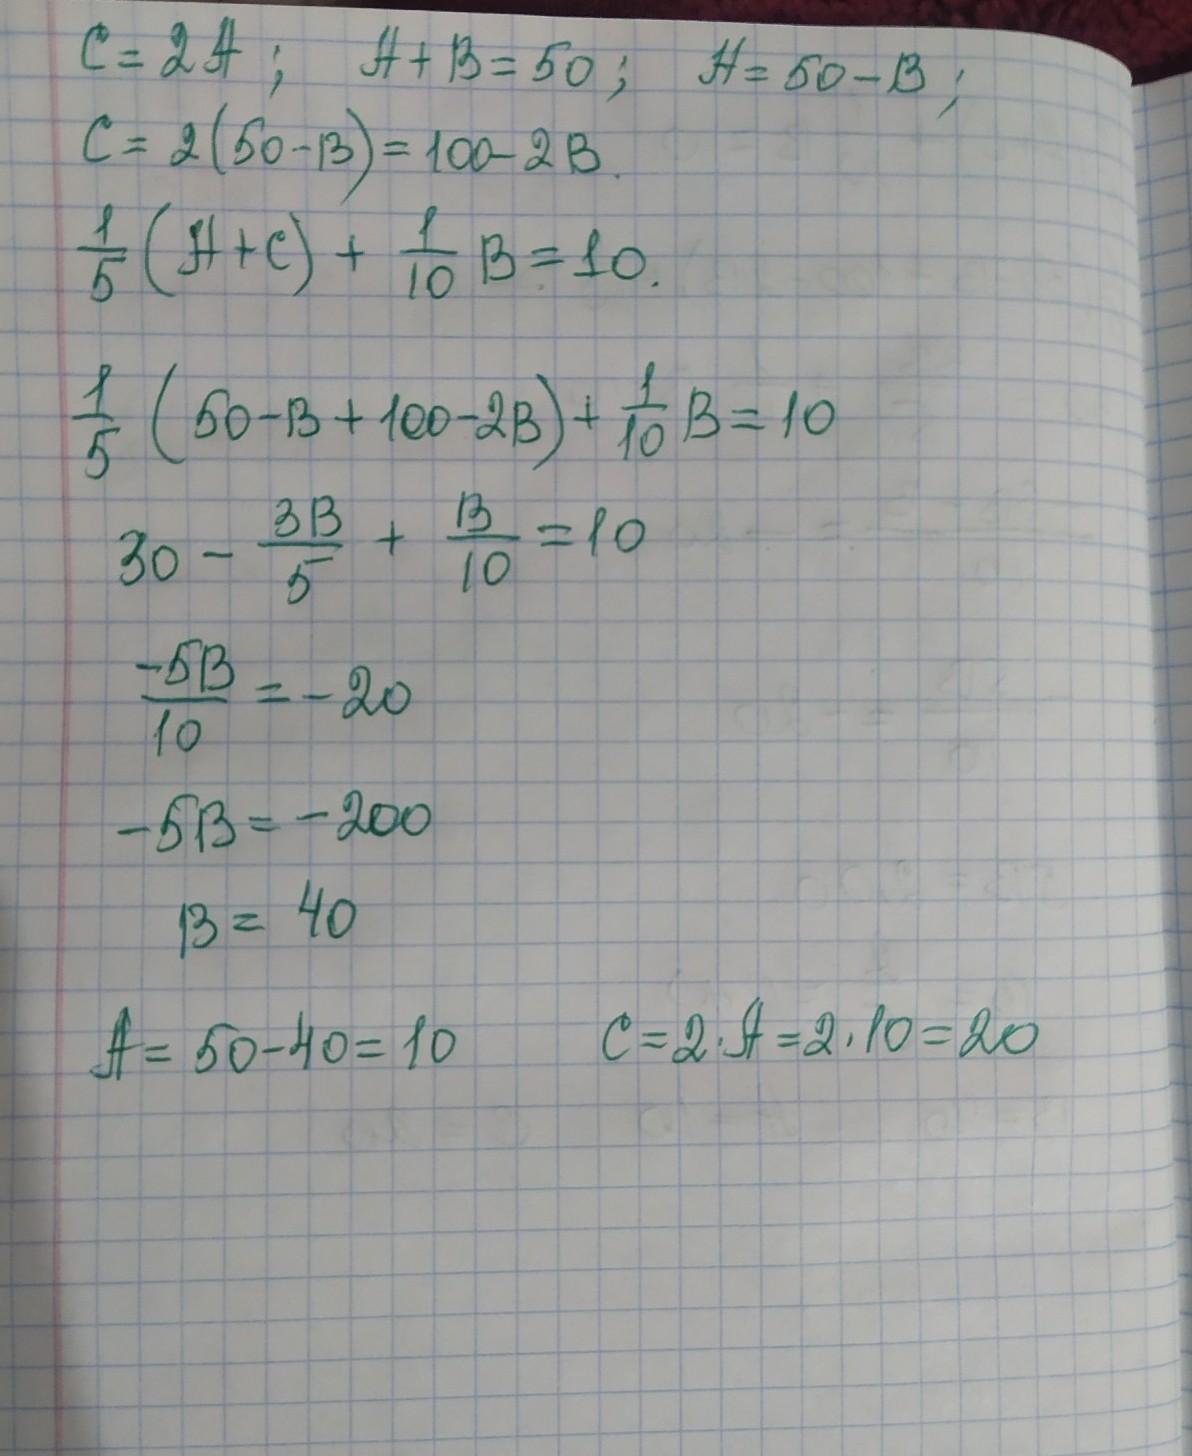 C = 2A; A + B = 50; A = 50 - B;
C = 2(50 - B) = 100 - 2B.
1/5 (A + C) + 1/10 B = 10.
1/5 (50 - B + 100 - 2B) + 1/10 B = 10
30 - 3B/5 + B/10 = 10
-5B/10 = -20
-5B = -200
B = 40
A = 50 - 40 = 10 C = 2 · A = 2 · 10 = 20